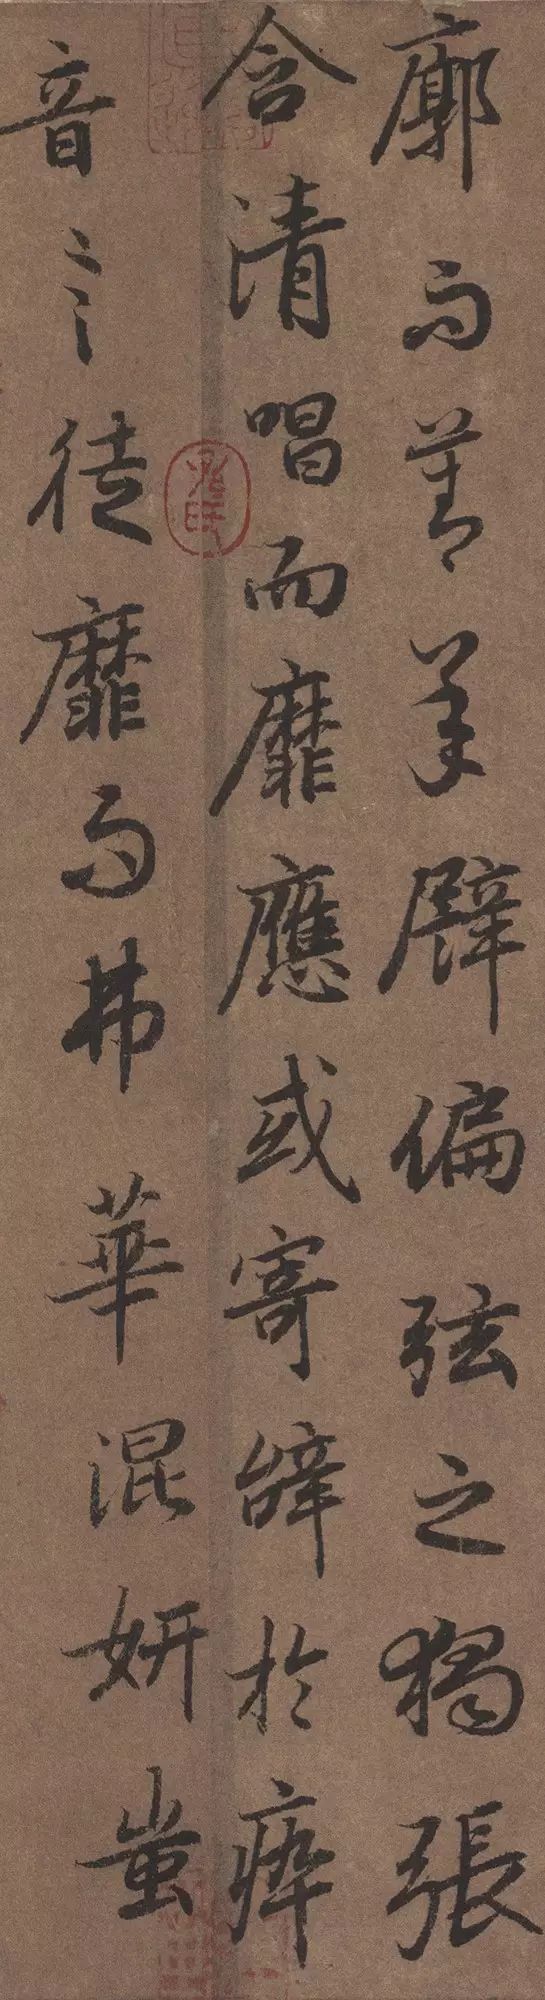 廓而莫承譬偏弦之獨張
含清唱而靡應或寄辭於瘁
音言徒靡而弗華混妍蚩